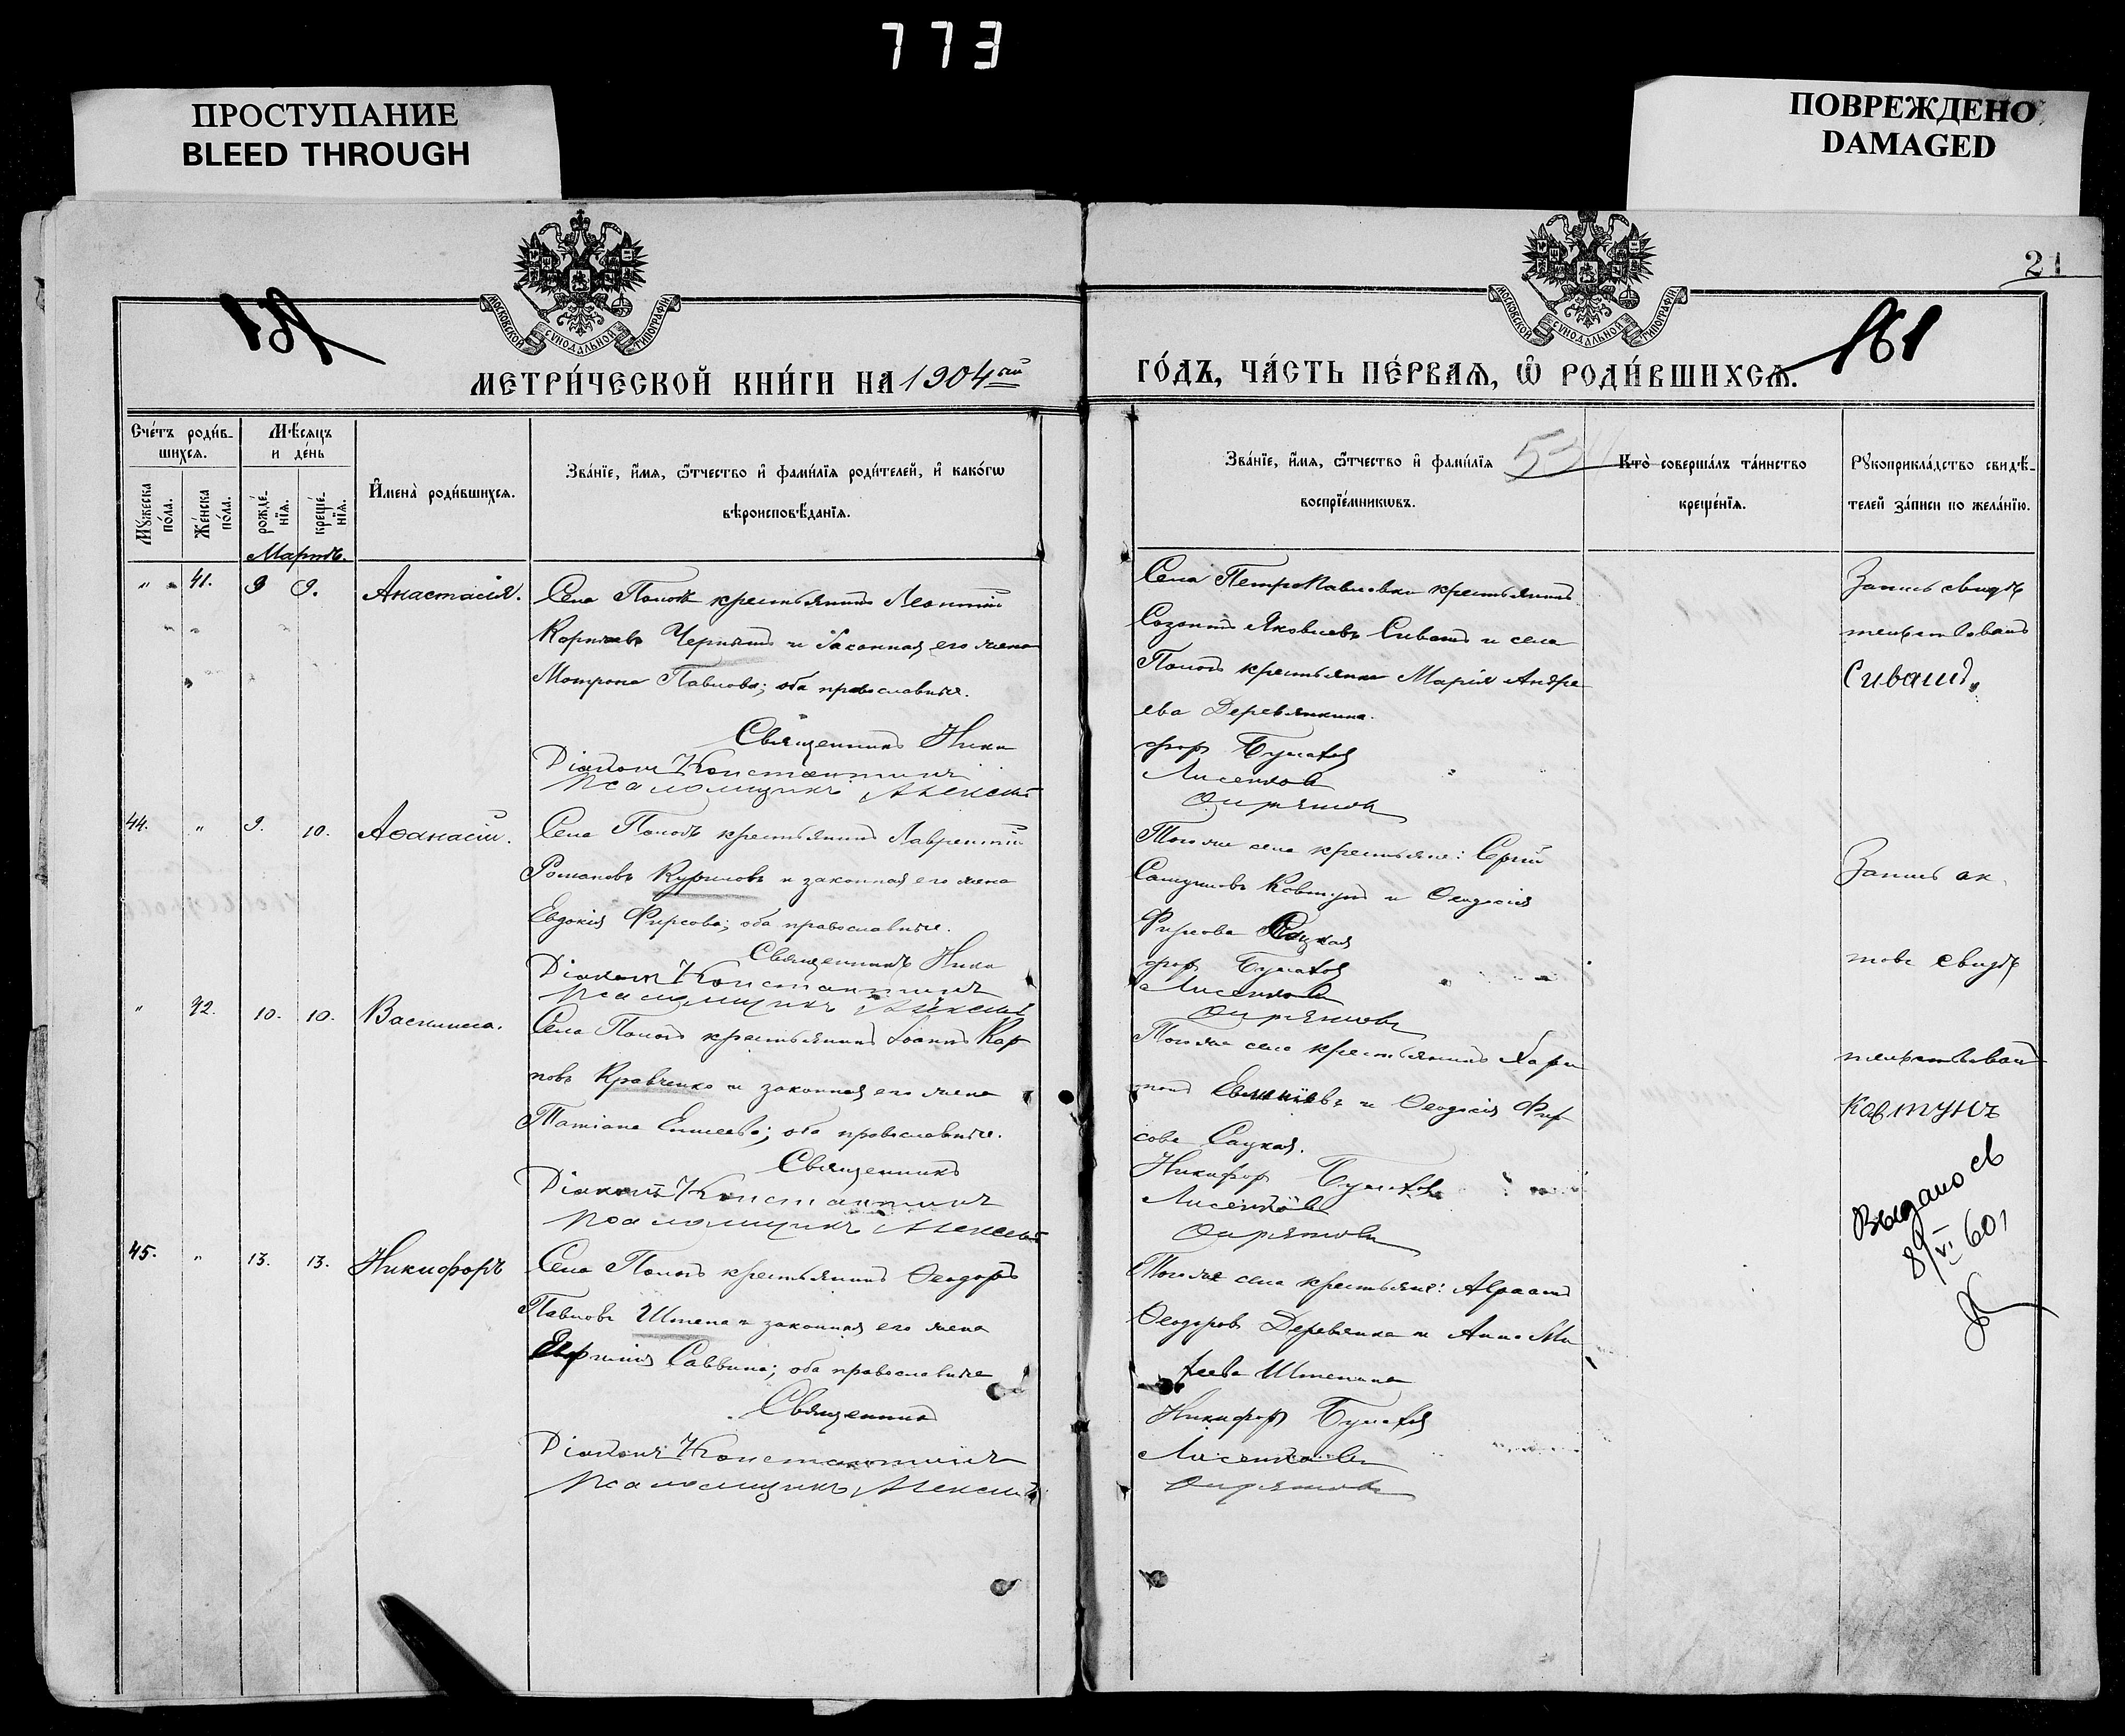 773
ПРОСТУПАНИЕ
BLEED THROUGH
ПОВРЕЖДЕНО
DAMAGED
МОСКОВСКОЙ СУНОДАЛЬНОЙ ТИПОГРАФІИ
МОСКОВСКОЙ СУНОДАЛЬНОЙ ТИПОГРАФІИ
21
161
МЕТРИ́ЧЕСКОЙ КНИ́ГИ НА 1904ый
ГО́ДЪ, ЧА́СТЬ ПЕ́РВАЯ, Ѡ҆ РОДИ́ВШИХСЯ.
Сче́тъ роди́в-
шихся.
Мѣсяцъ
и де́нь
Мꙋ́жеска по́ла.
Же́нска по́ла.
рожде́-
нїя.
креще́-
нїя.
И҆мена̀ роди́вшихся.
Зва́нїе, и҆́мя, ѻ҆́тчество и҆ фами́лїя роди́телей, и҆ како́гѡ
вѣроисповѣ́данїя.
Зва́нїе, и҆́мя, ѻ҆́тчество и҆ фами́лїя
воспрїе́мникѡвъ.
Кто̀ соверша́лъ та́инство
креще́нїя.
Рꙋкоприкла́дство свидѣ́-
телей за́писи по жела́нїю.
Мартъ.
" 41. 9 9. Анастасія.
Села Пологъ крестьянинъ Леонтій
Корнѣевъ Чернышъ и законная его жена
Мотрона Павлова; оба православные.
Священникъ Ники
Діаконъ Константинъ
Псаломщикъ Алексѣй
Села ПетроПавловки крестьянинъ
Созонтъ Яковлевъ Сивашъ и села
Пологъ крестьянка Марія Андре
ева Деревянкина.
форъ
Лисенковъ
Запись свидѣ
тельствовалъ
Сивашъ
44. " 9. 10. Аѳанасій.
Села Пологъ крестьянинъ Лаврентій
Романовъ Куриловъ и законная его жена
Евдокія Фирсова; оба православные.
Священникъ Ники
Діаконъ Константинъ
Псаломщикъ Алексѣй
Того же села крестьяне: Сергій
Ковтунъ и Ѳеодосія
Фирсова Сацкая
форъ
Лисенковъ
Запись ак
това свидѣ
" 42. 10. 10. Василисса.
Села Пологъ крестьянинъ Іоаннъ Кар
повъ Кравченко и законная его жена
Татіана Елисеева; оба православные.
Священникъ
Діаконъ Константинъ
Псаломщикъ Алексѣй
Того же села крестьянинъ Хари
тонъ и Ѳеодосія Фир
сова Сацкая.
Никифоръ
Лисенковъ
тельствовалъ
Ковтунъ
Выдано св
8/VI 60,
45. " 13. 13. Никифоръ
Села Пологъ крестьянинъ Ѳеодоръ
Павловъ Штепа и законная его жена
Саввина; оба православные
Священникъ
Діаконъ Константинъ
Псаломщикъ Алексѣй
Того же села крестьяне: Авраамъ
Ѳеодоровъ Деревянка и Анна Ма
ѳеева Штепина
Никифоръ
Лисенковъ